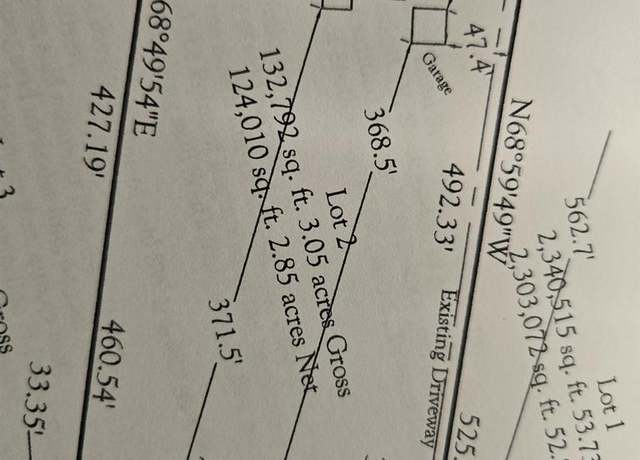 Lot 1
2,340,515 sq. ft. 53.73
2,303,072 sq. ft. 52.
562.7'
N68°59'49"W
47.4'
492.33'
525.
Existing Driveway
Garage
368.5'
Lot 2
132,792 sq. ft. 3.05 acres Gross
124,010 sq. ft. 2.85 acres Net
371.5'
68°49'54"E
427.19'
460.54'
33.35'